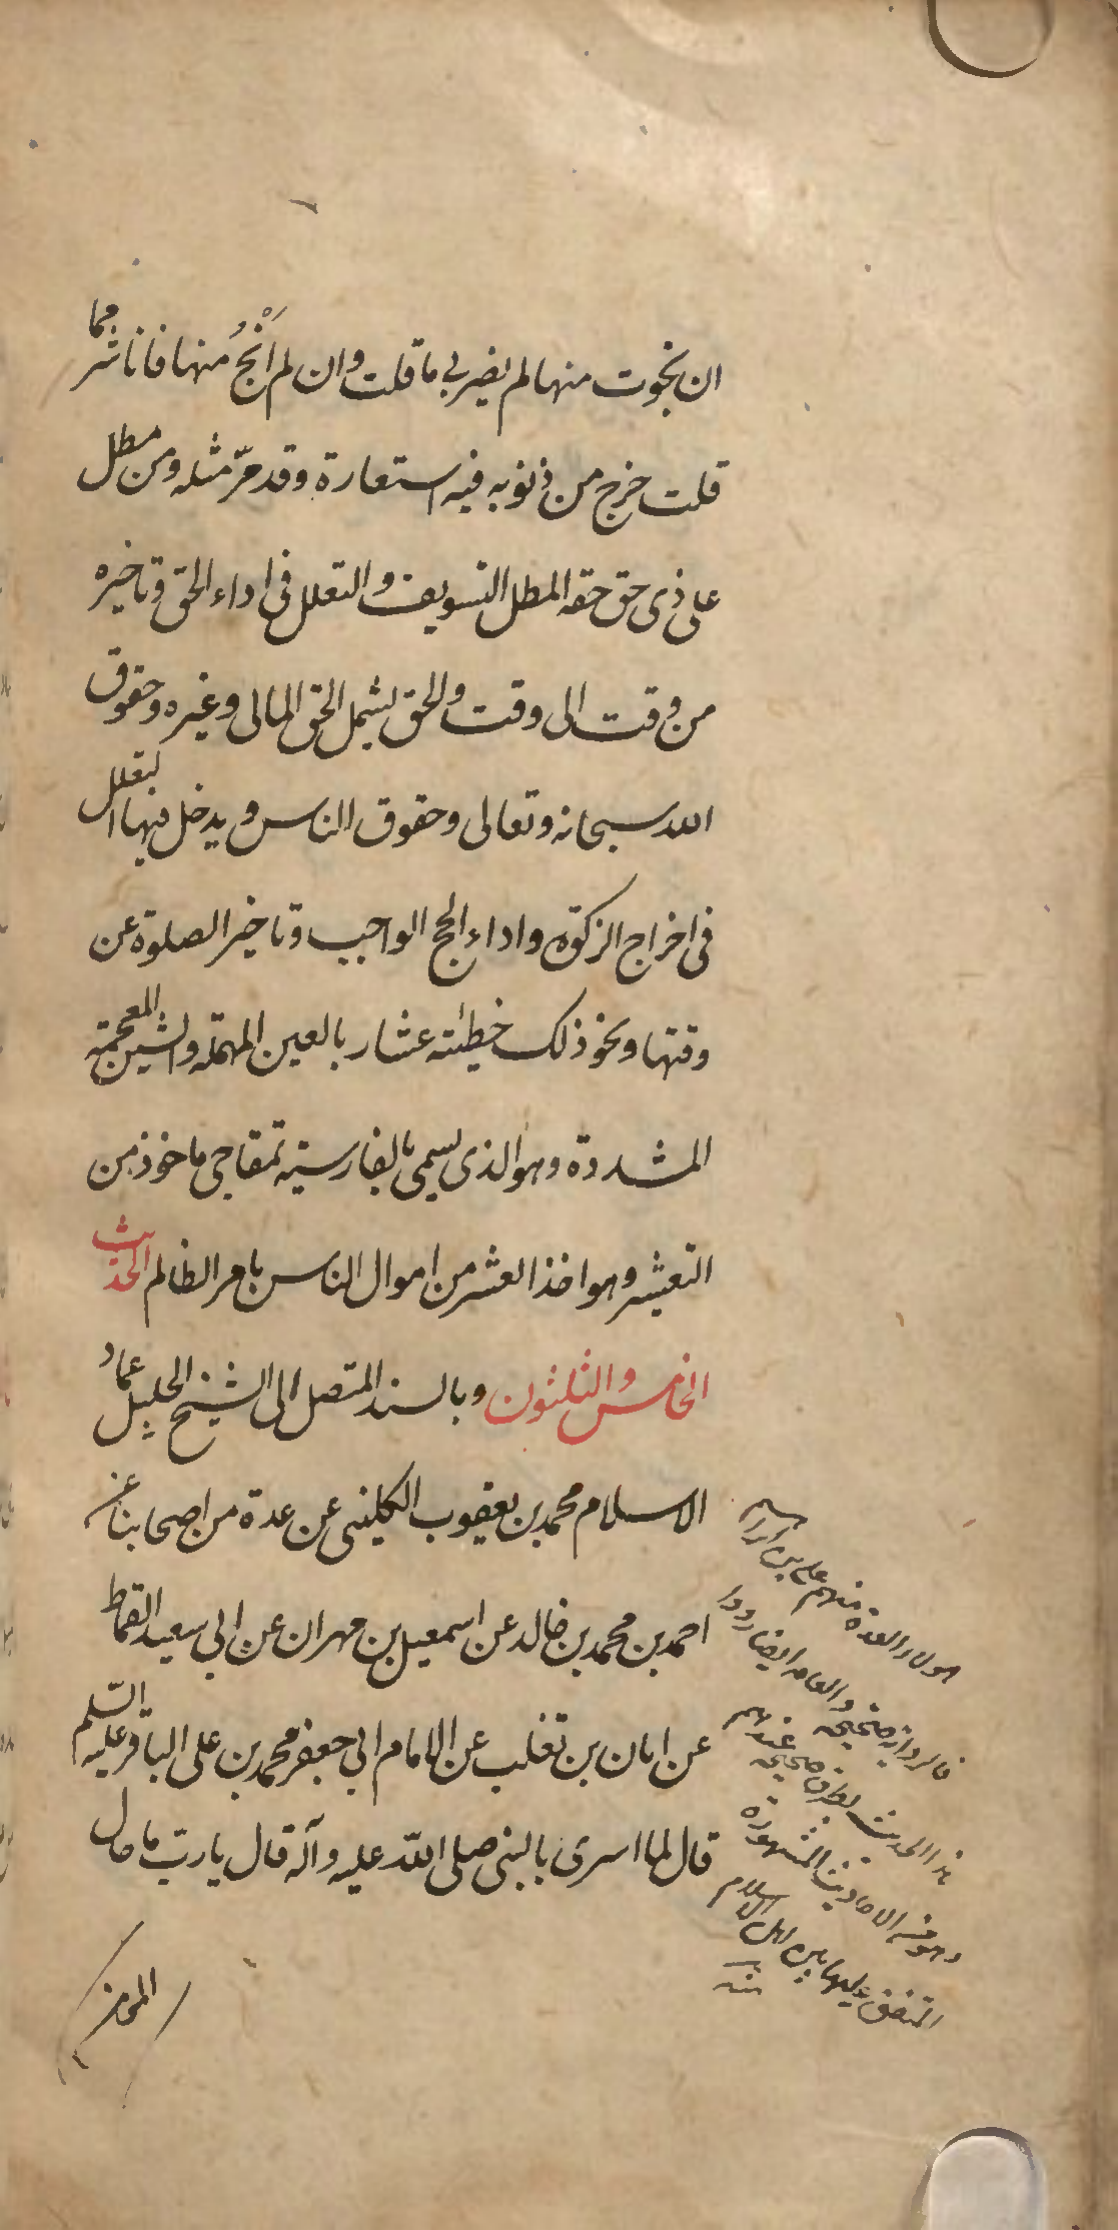 ان نجوت منها لم يضر بي ما قلت وان لم اَنْجُ منها فانا شر مما
قلت خرج من ذنوبه فيه استعارة وقد مرّ مثله ومن مطل
على ذى حق حقه المطل التسويف والتعلل فى اداء الحق وتاخيره
من وقت الى وقت والحق يشمل الحق المالى وغيره وحقوق
الله سبحانه وتعالى وحقوق الناس ويدخل فيها التعلل
فى اخراج الزكوة واداء الحج الواجب وتاخير الصلوة عن
وقتها ونحو ذلك خطيئته عشار بالعين المهملة والشين المعجمة
المشددة وهو الذى يسمى بالفارسية تمقاجى ماخوذ من
التعشير وهو اخذ العشر من اموال الناس بامر الظالم الحديث
الخامس والثلثون وبالسند المتصل الى الشيخ الجليل عماد
الاسلام محمد بن يعقوب الكلينى عن عدة من اصحابنا عن
احمد بن محمد بن خالد عن اسمعيل بن مهران عن ابي سعيد القماط
عن ابان بن تغلب عن الامام ابي جعفر محمد بن على الباقر عليه السّلم
قال لما اسرى بالنبى صلى اللّه عليه وآله قال يا ربّ ما حال
المؤمن
هولاء العدة منهم على بن ابراهيم
فالرواية صحيحة والعامه ايضا رووا
هذا الحديث بطرق صحيحة عندهم
وهو من الاحاديث المشهورة
المتفق عليها بين اهل الاسلام
منه